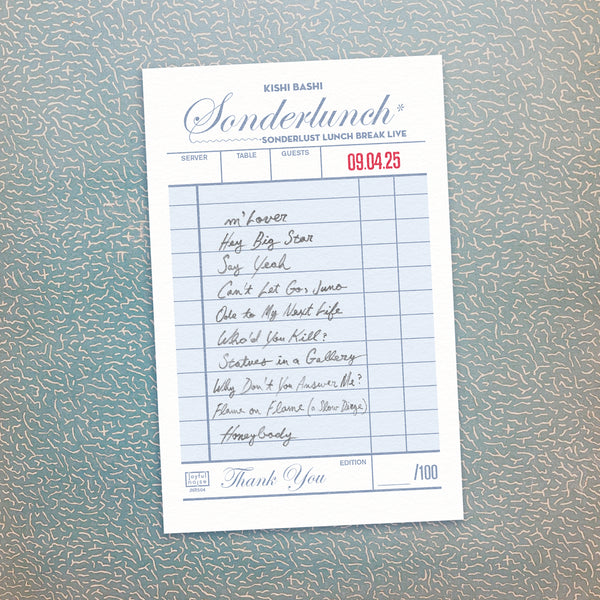 KISHI BASHI
Sonderlunch*
SONDERLUST LUNCH BREAK LIVE
SERVER TABLE GUESTS 09.04.25
m'Lover
Hey Big Star
Say Yeah
Can't Let Go, Juno
Ode to My Next Life
Who'd You Kill?
Statues in a Gallery
Why Don't You Answer Me?
Flame on Flame (a Slow Dirge)
Honeybody
joyful noise
JNR504
Thank You
EDITION
/100